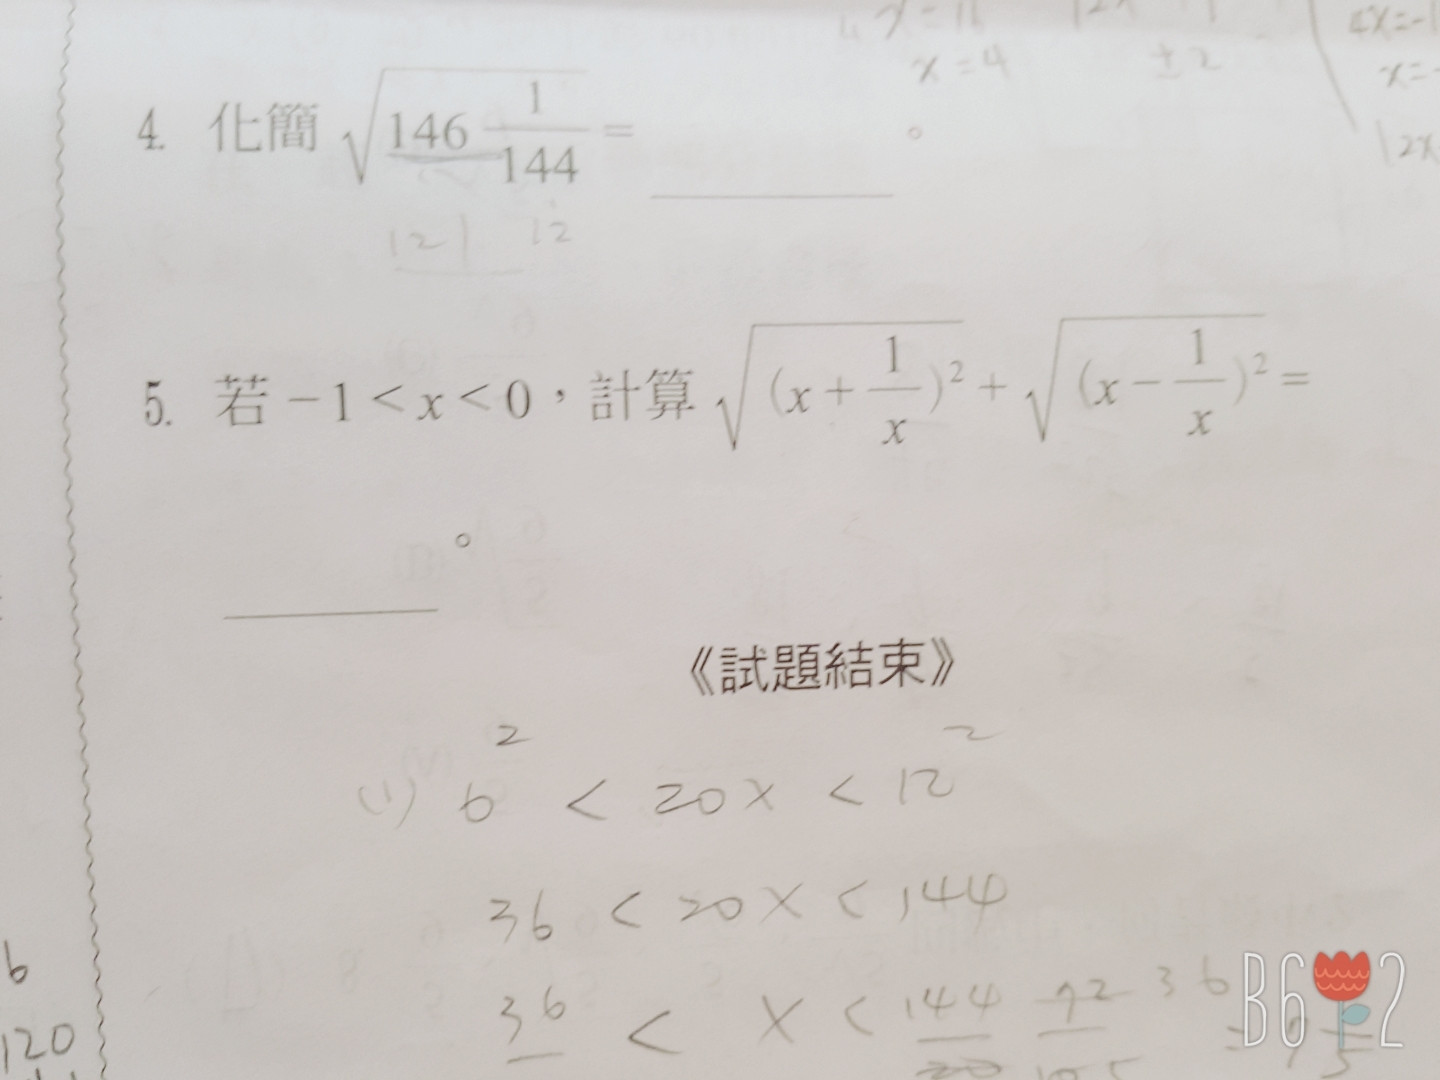 x=4
±2
4. 化簡 √(146 1/144) = ______。
121 12
5. 若 −1 < x < 0，計算 √((x + 1/x)²) + √((x − 1/x)²) =
______。
《試題結束》
(1) 6² < 20x < 12²
36 < 20x < 144
36 < x < 144/20
6
120
B612